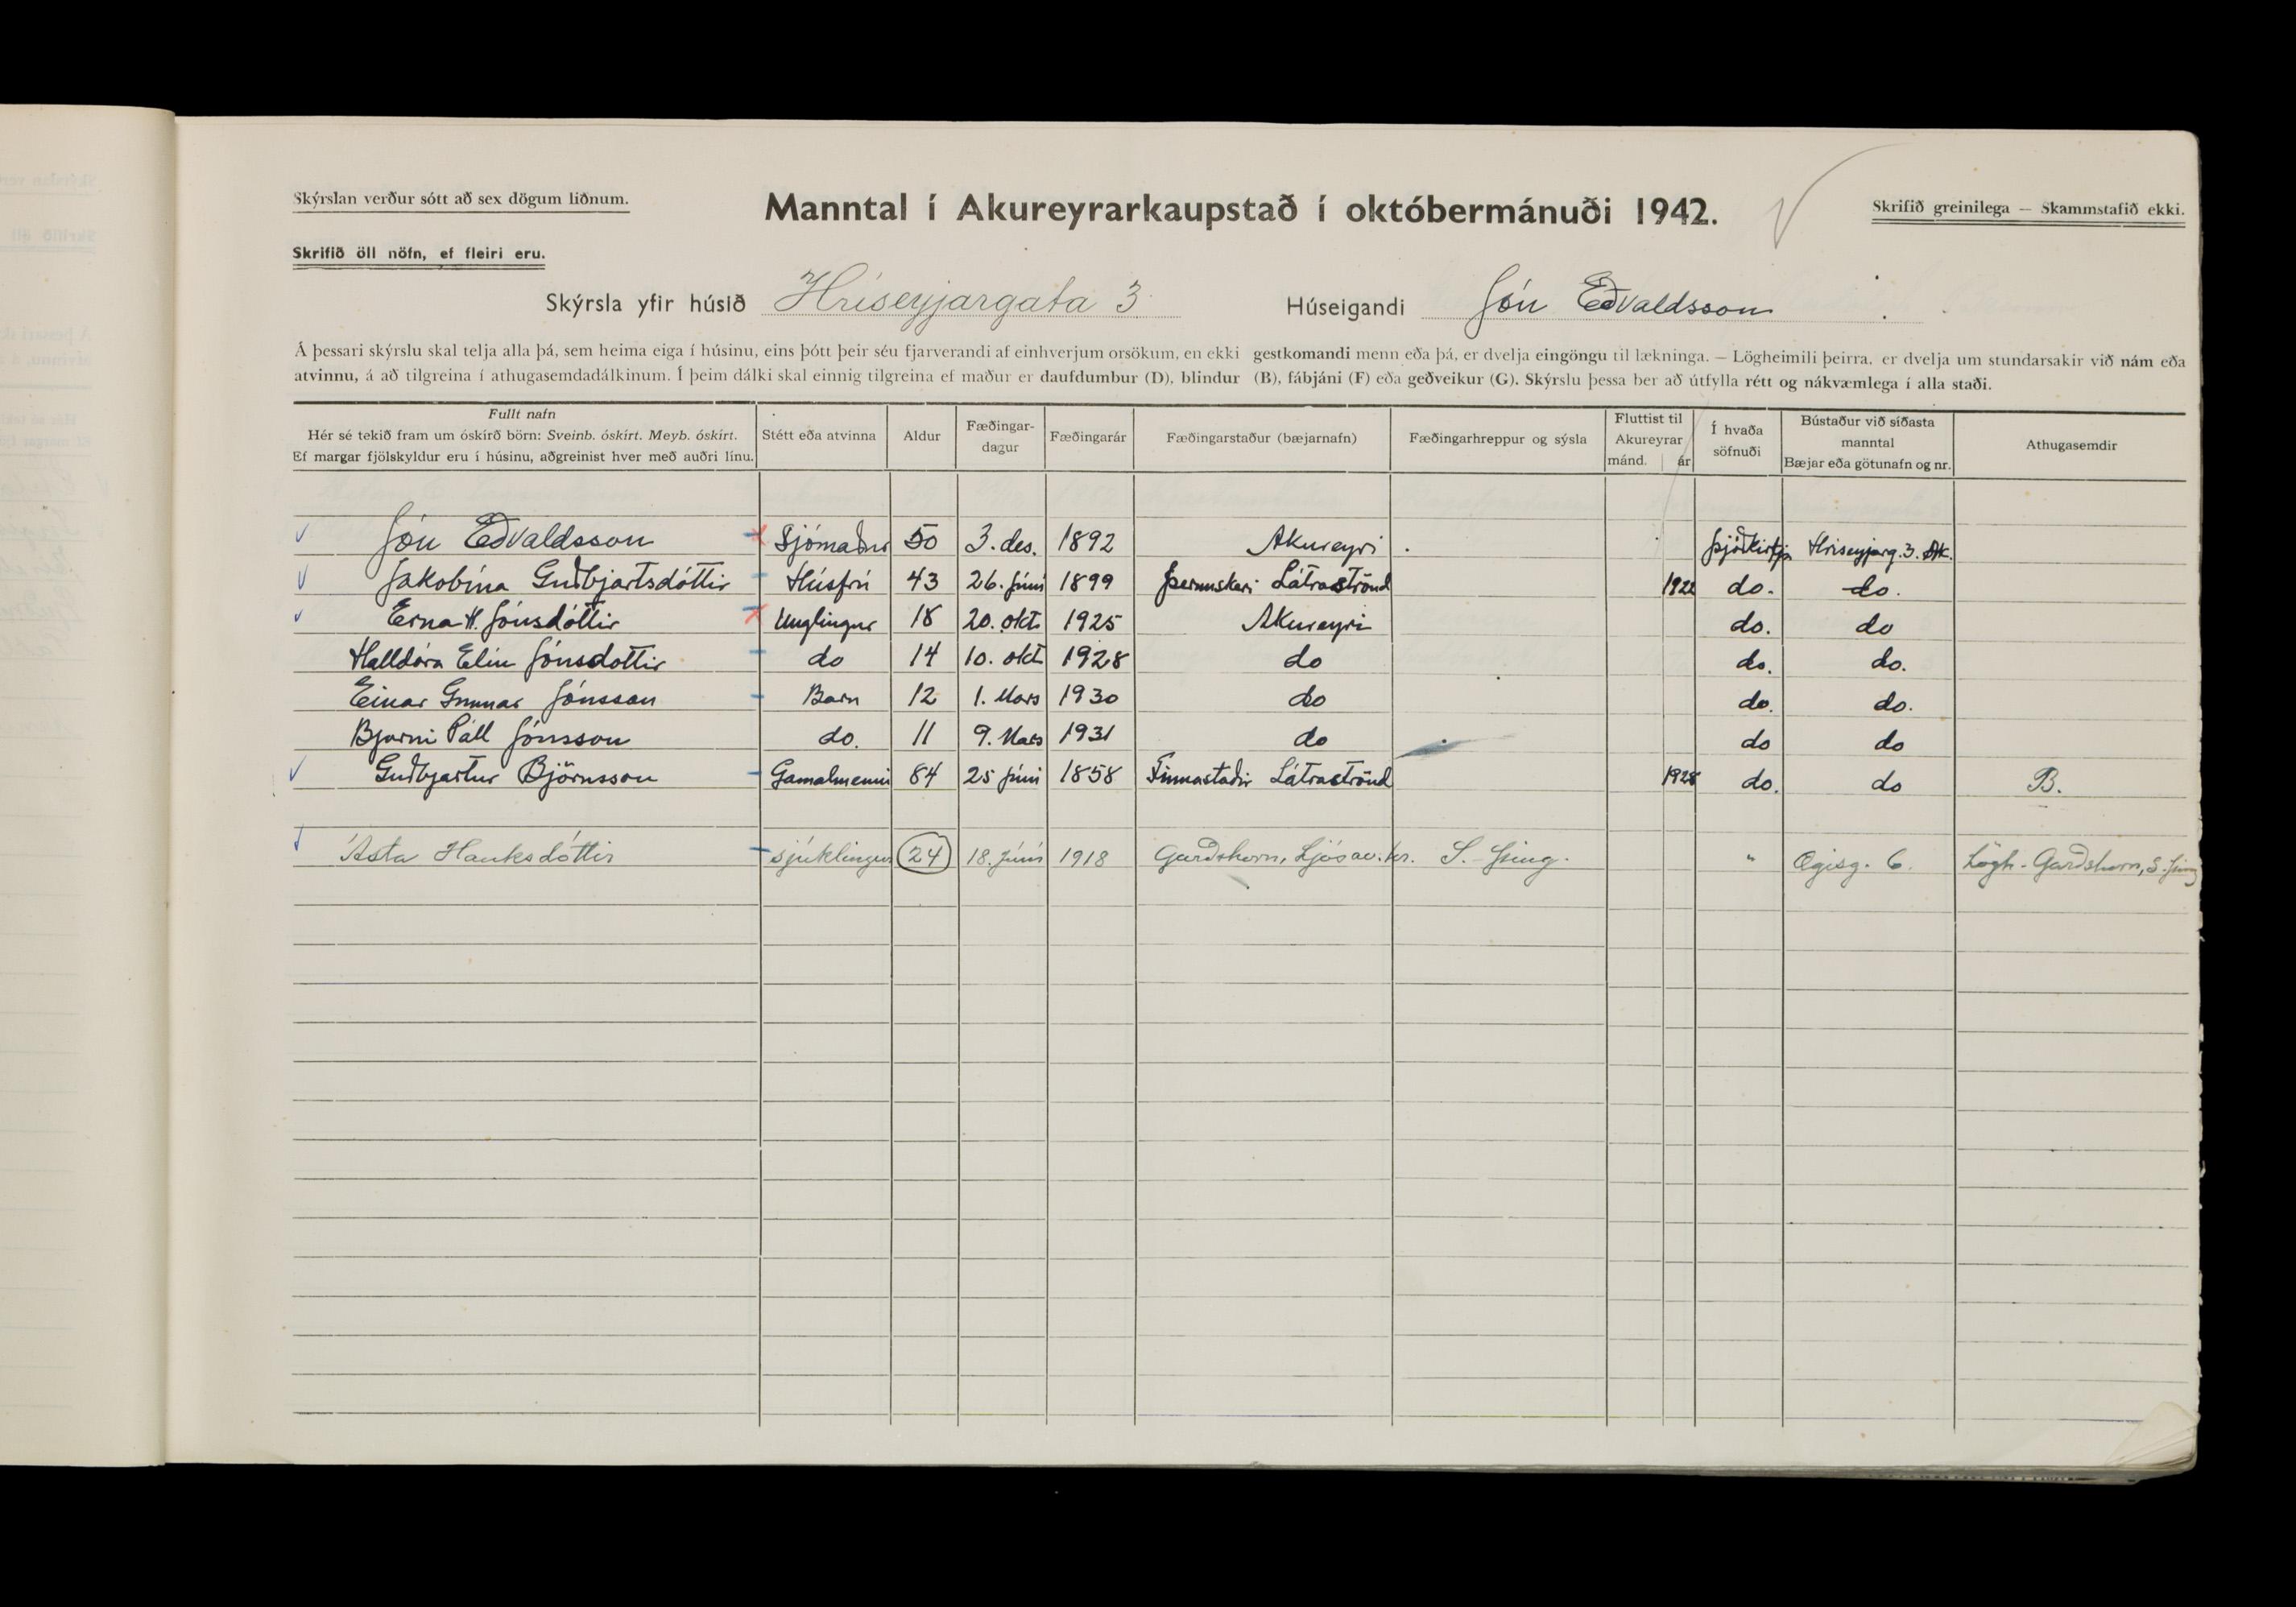 Skýrslan verður sótt að sex dögum liðnum.
Manntal í Akureyrarkaupstað í októbermánuði 1942.
Skrifið greinilega — Skammstafið ekki.
Skrifið öll nöfn, ef fleiri eru.
Skýrsla yfir húsið Hríseyjargata 3 Húseigandi Jón Eðvaldsson
Á þessari skýrslu skal telja alla þá, sem heima eiga í húsinu, eins þótt þeir séu fjarverandi af einhverjum orsökum, en ekki gestkomandi menn eða þá, er dvelja eingöngu til lækninga. — Lögheimili þeirra, er dvelja um stundarsakir við nám eða
atvinnu, á að tilgreina í athugasemdadálkinum. Í þeim dálki skal einnig tilgreina ef maður er daufdumbur (D), blindur (B), fábjáni (F) eða geðveikur (G). Skýrslu þessa ber að útfylla rétt og nákvæmlega í alla staði.
Fullt nafn
Hér sé tekið fram um óskírð börn: Sveinb. óskírt. Meyb. óskírt.
Ef margar fjölskyldur eru í húsinu, aðgreinist hver með auðri línu.
Stétt eða atvinna
Aldur
Fæðingar-
dagur
Fæðingarár
Fæðingarstaður (bæjarnafn)
Fæðingarhreppur og sýsla
Fluttist til
Akureyrar
mánd. ár
Í hvaða
söfnuði
Bústaður við síðasta
manntal
Bæjar eða götunafn og nr.
Athugasemdir
Jón Eðvaldsson Sjómaður 50 3. des. 1892 Akureyri Þjóðkirkja Hríseyjarg. 3. Ak.
Jakobína Guðbjartsdóttir Húsfrú 43 26. Júní 1899 Látraströnd 1922 do. do.
Erna H. Jónsdóttir Unglingur 18 20. okt 1925 Akureyri do. do
Halldóra Elín Jónsdottir do 14 10. okt 1928 do do. do.
Einar Gunnar Jónsson Barn 12 1. Mars 1930 do do. do.
Bjarni Páll Jónsson do. 11 9. Mars 1931 do do do
Guðbjartur Björnsson Gamalmenni 84 25 Júní 1858 Finnastaðir Látraströnd 1928 do. do B.
Ásta Hauksdóttir sjúklingur 24 18. Júní 1918 Garðshorn, Ljósav.hr. S.-Þing. " Ægisg. 6. Lögh. Garðshorn, S.Þing